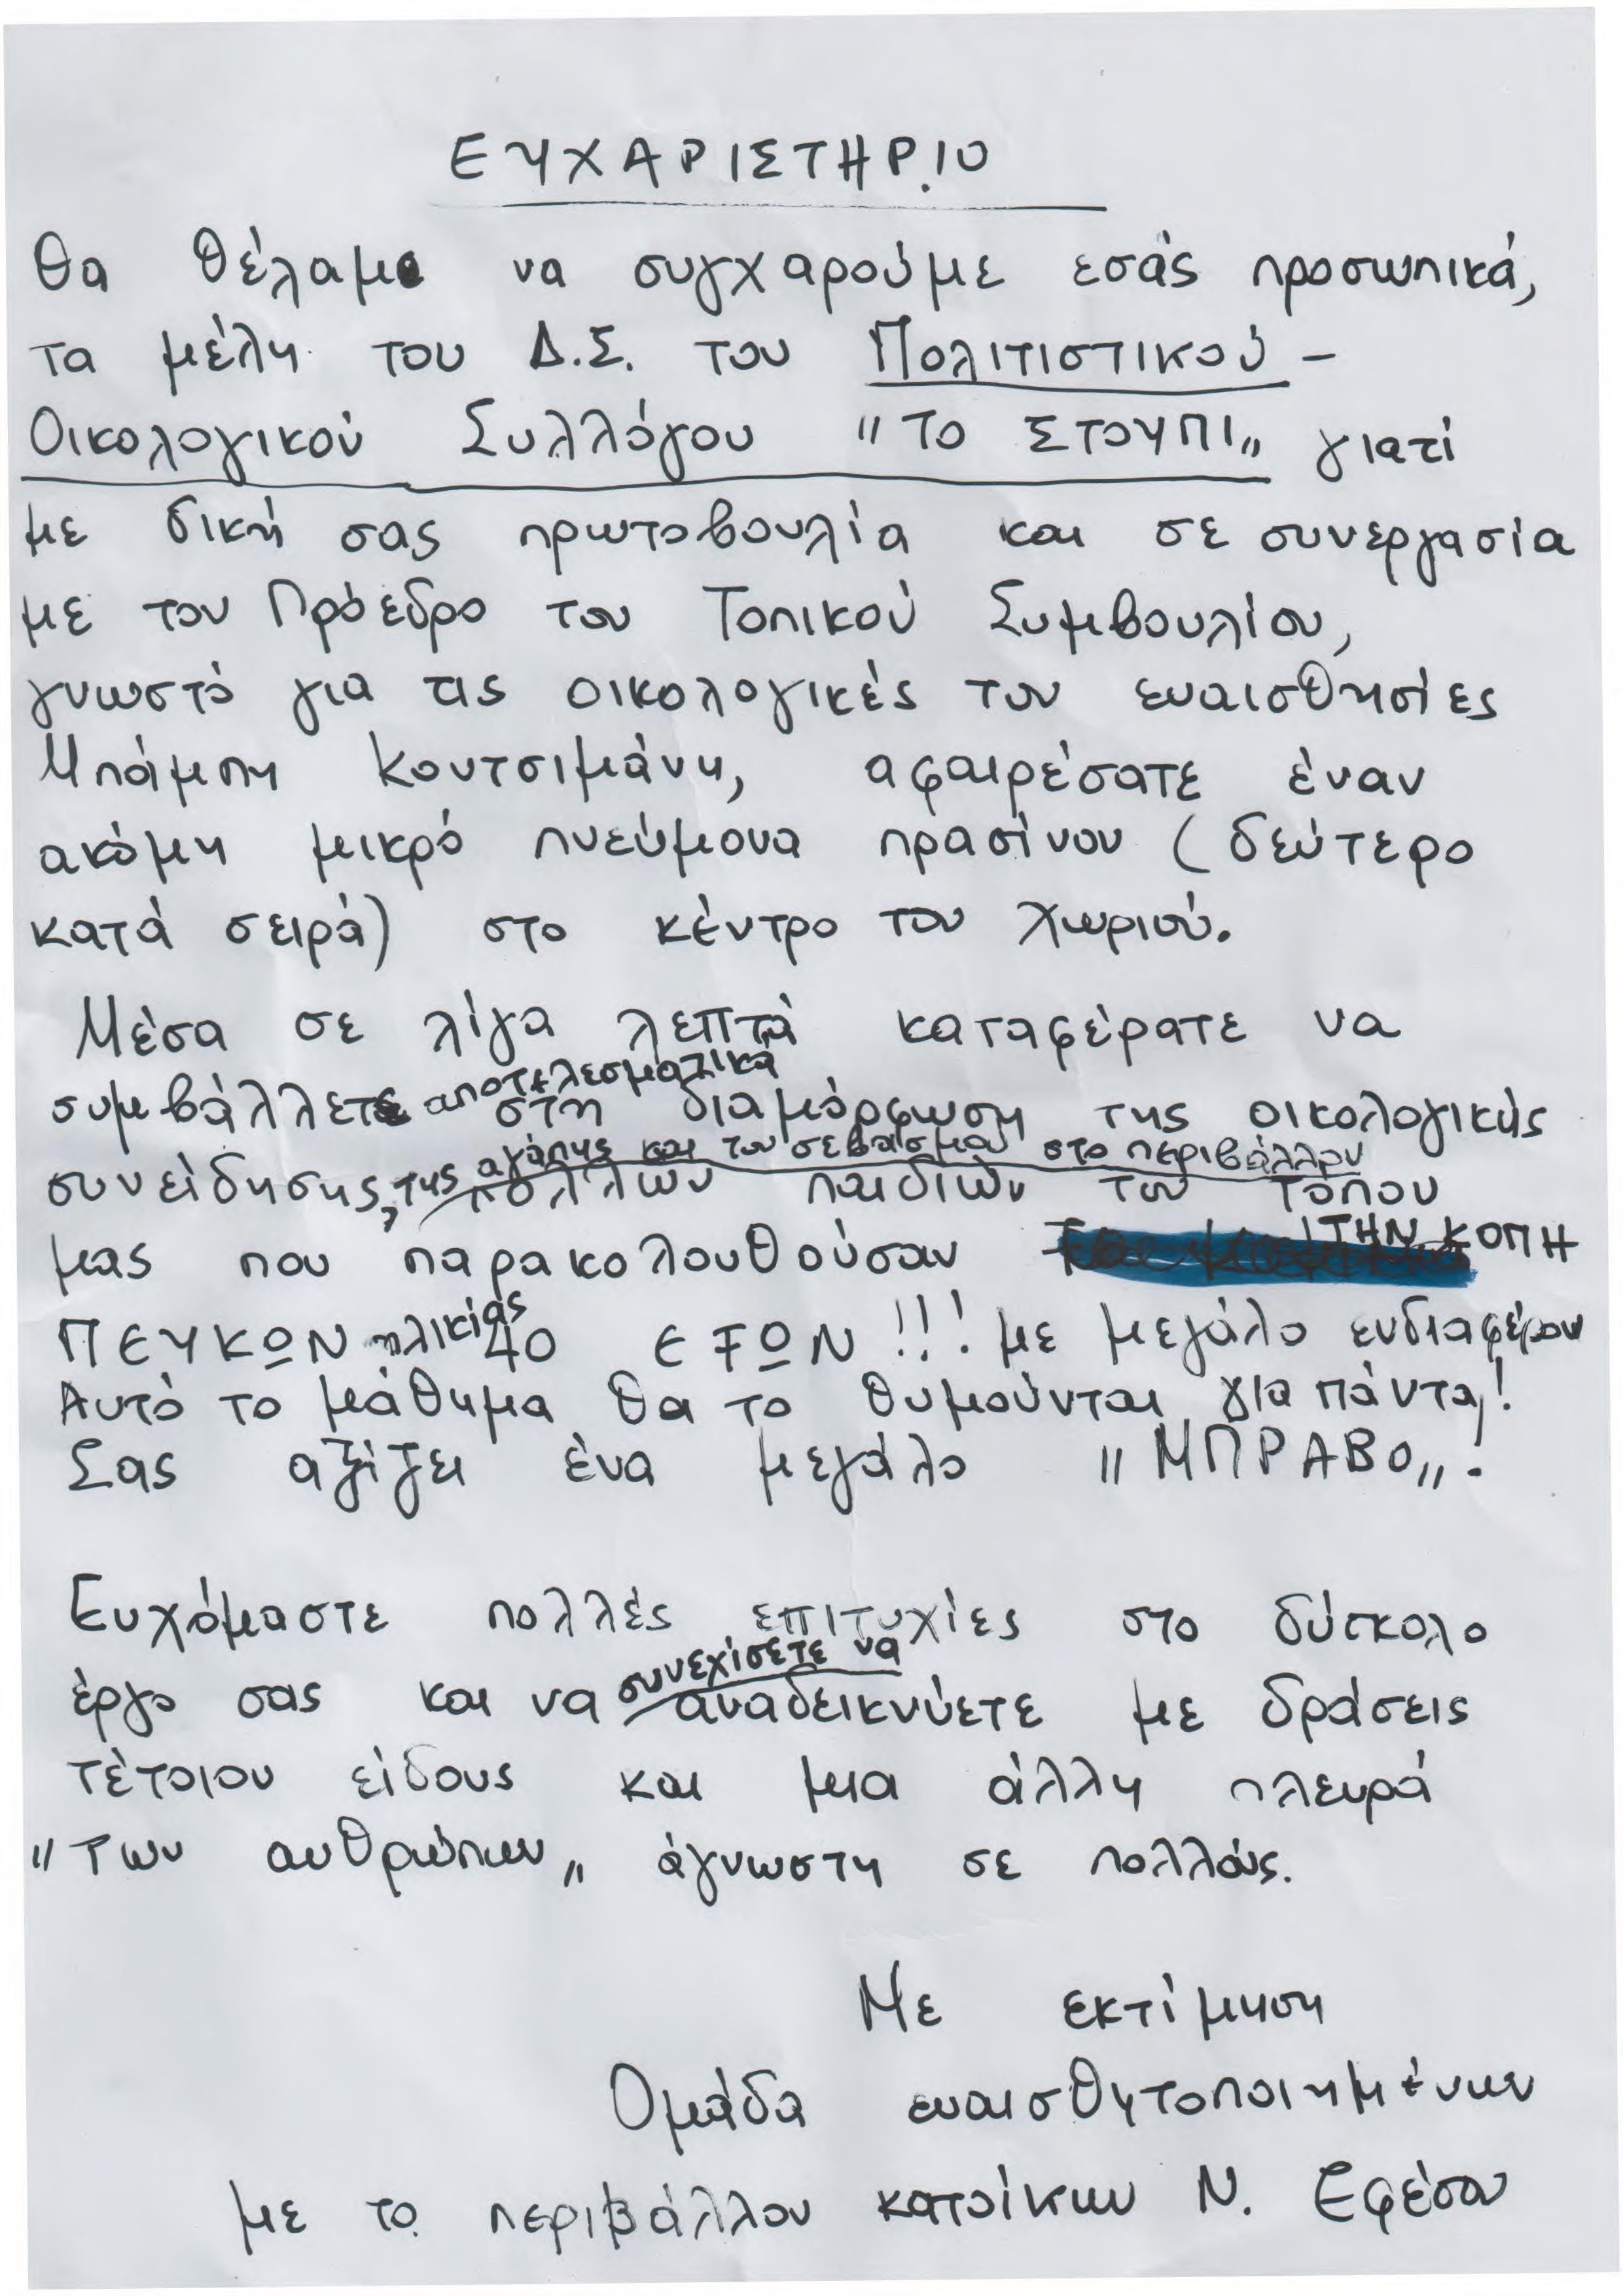 ΕΥΧΑΡΙΣΤΗΡΙΟ
Θα θέλαμε να συγχαρούμε εσάς προσωπικά,
τα μέλη του Δ.Σ. του Πολιτιστικού -
Οικολογικού Συλλόγου "ΤΟ ΣΤΟΥΠΙ" γιατί
με δική σας πρωτοβουλία και σε συνεργασία
με τον Πρόεδρο του Τοπικού Συμβουλίου,
γνωστό για τις οικολογικές του ευαισθησίες
Μπάμπη Κουτσιμάνη, αφαιρέσατε έναν
ακόμη μικρό πνεύμονα πρασίνου (δεύτερο
κατά σειρά) στο κέντρο του χωριού.
Μέσα σε λίγα λεπτά καταφέρατε να
αποτελεσματικά
συμβάλλετε στη διαμόρφωση της οικολογικής
της αγάπης και του σεβασμού στο περιβάλλον
συνείδησης, πολλών παιδιών του τόπου
μας που παρακολουθούσαν ΤΗΝ ΚΟΠΗ
ΠΕΥΚΩΝ ηλικίας 40 ΕΤΩΝ!!! με μεγάλο ενδιαφέρον
Αυτό το μάθημα θα το θυμούνται για πάντα!
Σας αξίζει ένα μεγάλο "ΜΠΡΑΒΟ"!
Ευχόμαστε πολλές επιτυχίες στο δύσκολο
συνεχίσετε να
έργο σας και να αναδεικνύετε με δράσεις
τέτοιου είδους και μια άλλη πλευρά
"των ανθρώπων" άγνωστη σε πολλούς.
Με εκτίμηση
Ομάδα ευαισθητοποιημένων
με το περιβάλλον κατοίκων Ν. Εφέσου